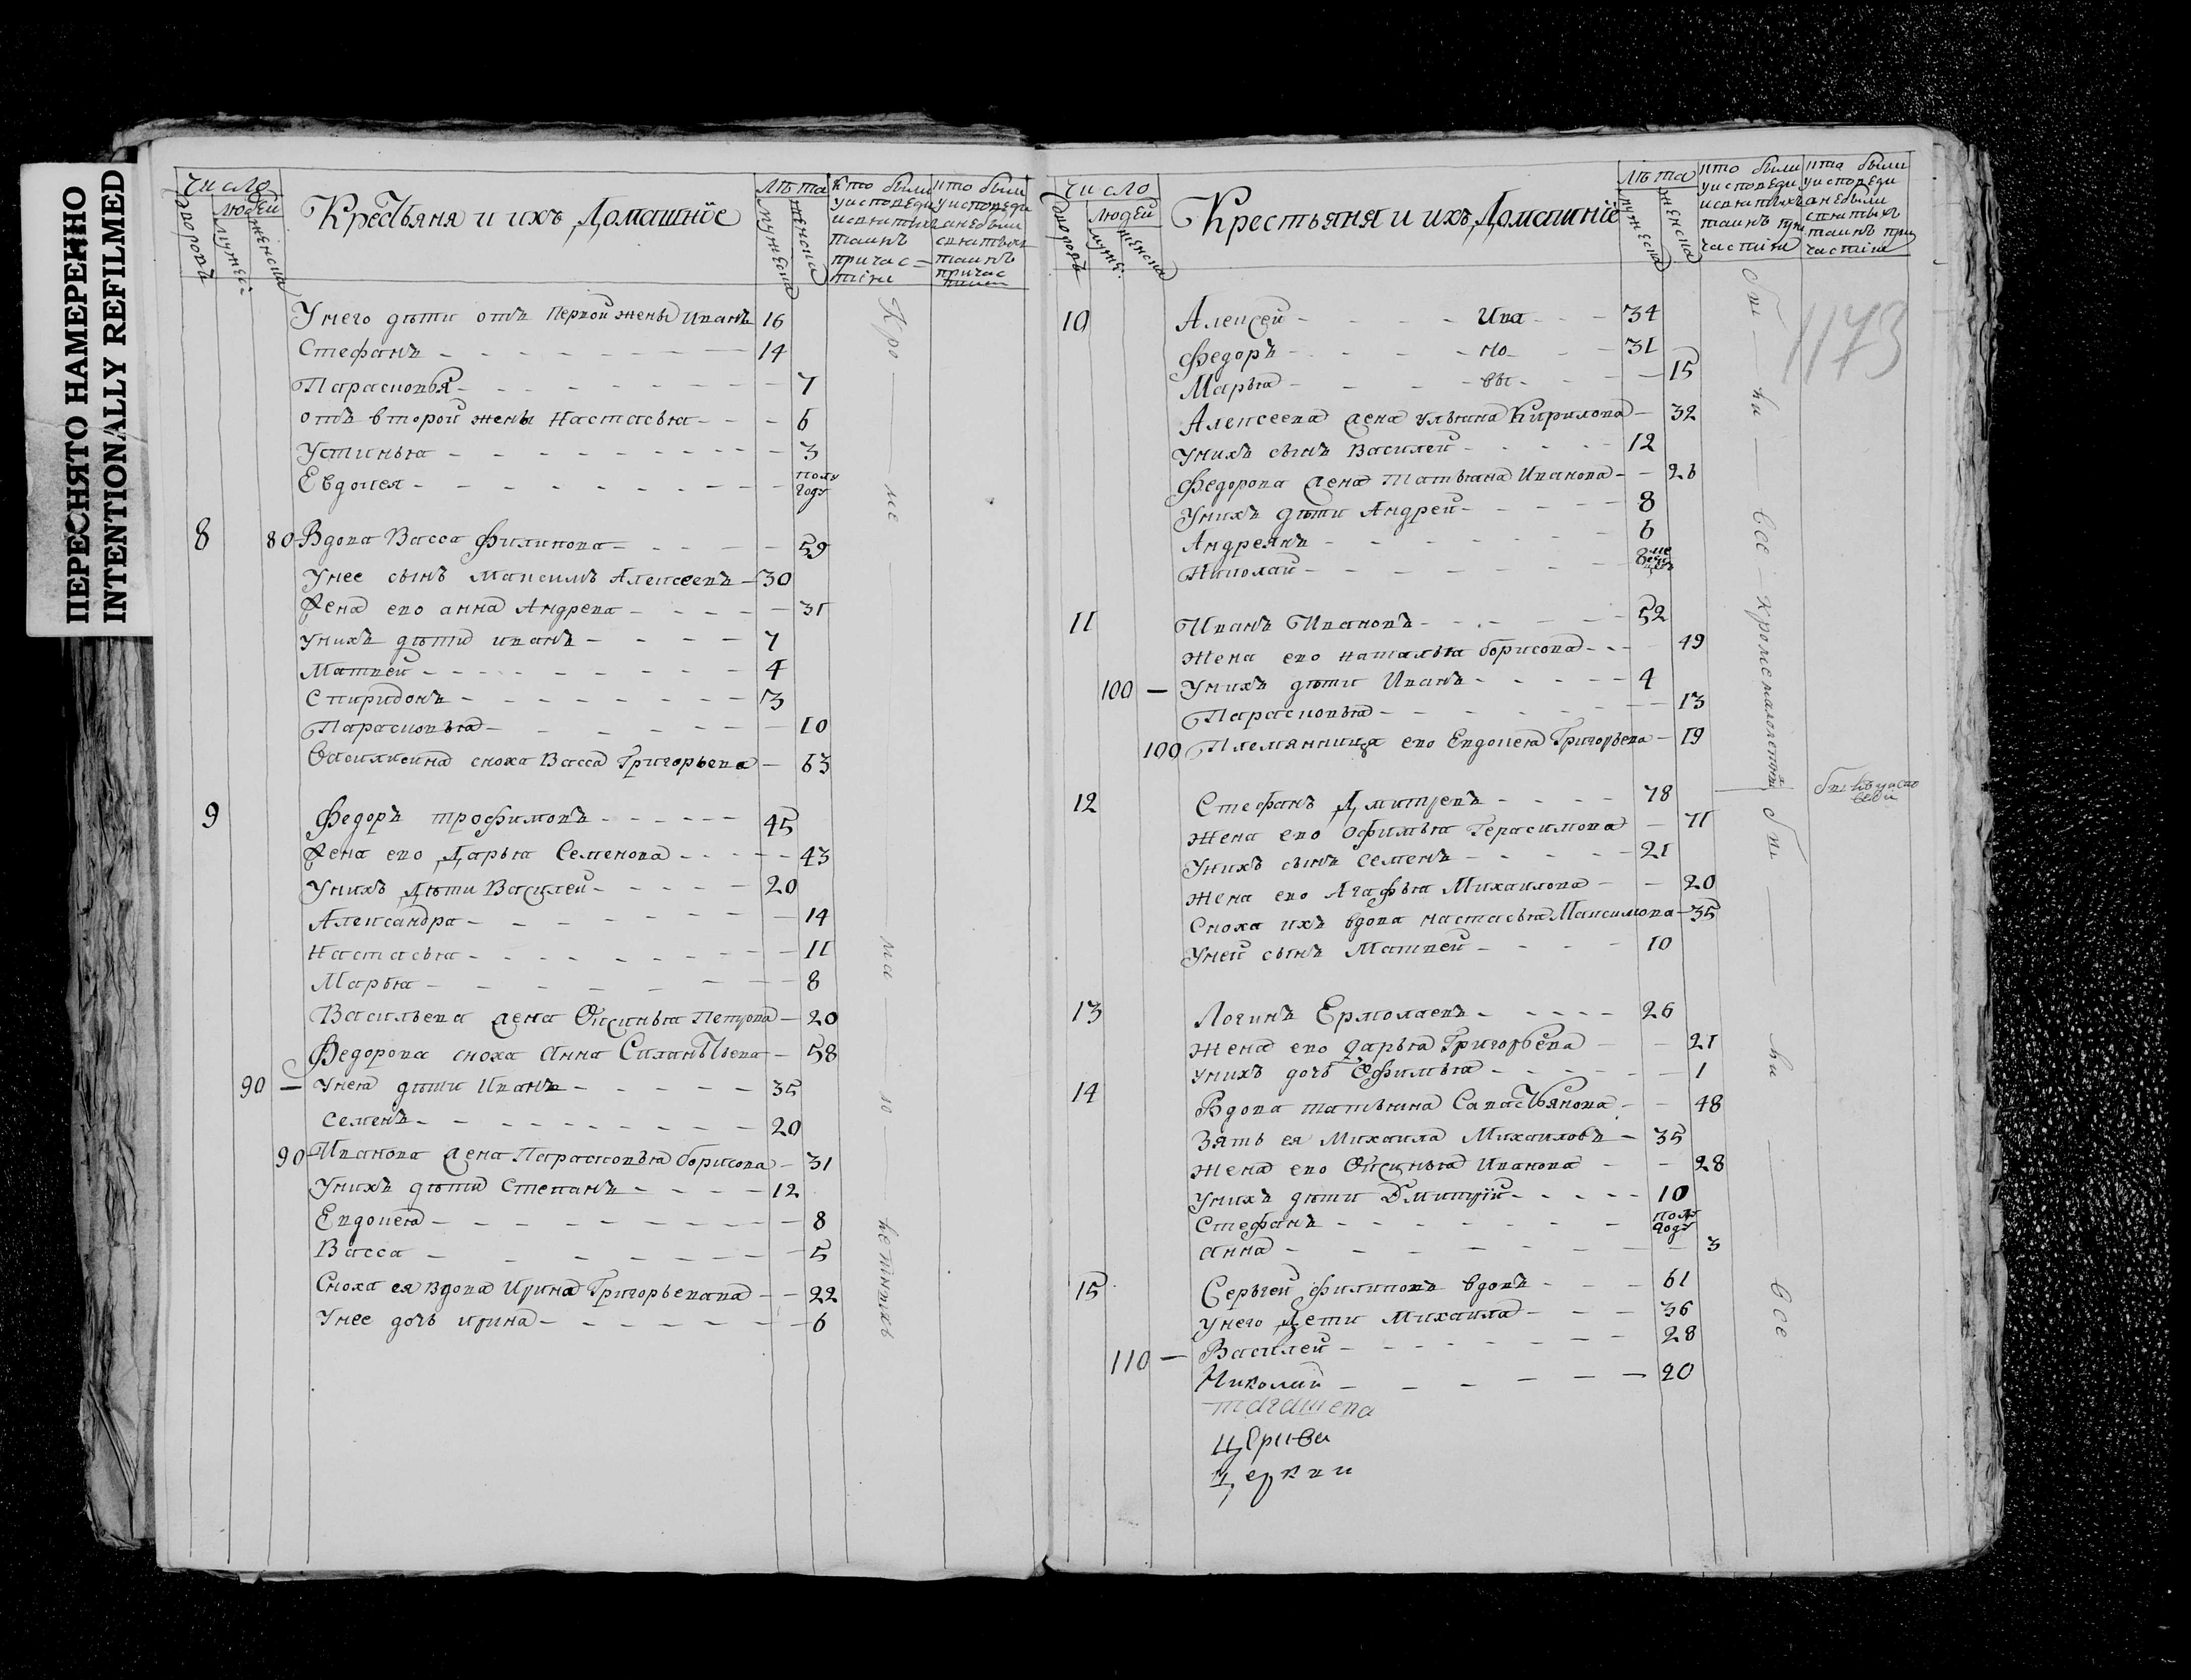 ПЕРЕСНЯТО НАМЕРЕННО
INTENTIONALLY REFILMED
Число
дворовъ
людей
мужес
женска
Крестьяня и ихъ Домашнїе
Лѣта
мужеска
женска
Кто были
у исповеди
и святыхъ
таинъ
причас=
тїи
кто были
у исповеди
а не были
святыхъ
таинъ
причас
тии
У него дѣти отъ первой жены Иванъ 16
Стефанъ 14
Парасковья 7
отъ второй жены Настасья 6
Устинья 3
Евдокея полу году
8 80 Вдова Васса Филипова 59
У нее сынъ Максимъ Алексеевъ 30
Жена ево анна Андрева 31
У нихъ дѣти иванъ 7
Матвей 4
Спиридонъ 3
Парасковья 10
сноха Васса Григорьева 63
9 Федоръ трофимовъ 45
Жена ево Дарья Семенова 43
У нихъ Дѣти Василей 20
Александра 14
Настасья 11
Марья 8
Васильева жена Оксинья Петрова 20
Федорова сноха Анна Силантьева 58
90 — У нея дѣти Иванъ 35
Семенъ 20
90 Иванова жена Парасковья борисова 31
У нихъ дѣти Степанъ 12
Евдокея 8
Васса 5
Сноха ея вдова Ирина Григорьевана 22
У нее дочь ирина 6
Кро — ме — ма — ло — летнихъ
Число
дворовъ
людей
муже.
женска
Крестьяня и ихъ Домашнїе
Лѣта
мужеска
женска
кто были
у исповеди
и святыхъ
таинъ при
частїи
кто были
у исповеди
а не были
святыхъ
таинъ при
частїи
1173
10 Алексей Ива 34
Федоръ но 31
Марья вы 15
Алексеева жена ульяна Кирилова 32
У нихъ сынъ Василей 12
Федорова жена Татьяна Иванова 26
У нихъ дѣти Андрей 8
Андреянъ 6
Николай 8 месецевъ
11 Иванъ Ивановъ 52
Жена ево наталья борисова 49
100 — У нихъ дѣти Иванъ 4
Парасковья 13
100 Племянница ево Евдокея Григорьева 19
12 Стефанъ Дмитревъ 78
Жена ево Офимья Герасимова 71
У нихъ сынъ Семенъ 21
Жена ево Агафья Михаилова 20
Сноха ихъ вдова настасья Максимова 35
У ней сынъ Матвей 10
13 Логинъ Ермолаевъ 26
Жена ево дарья Григорьева 21
У нихъ дочь Офимья 1
14 Вдова татьяна Савастьянова 48
Зять ея Михаила Михаиловъ 35
Жена ево Оксинья Иванова 28
У нихъ дѣти Дмитрїй 10
Стефанъ полу году
анна 3
15 Серьгей филиповъ вдовъ 61
У него Дети Михаила 36
Василей 28
110 — Николай 20
церкви
церкви
бы — ли — все — кроме малолетныхъ
бы — ли — все